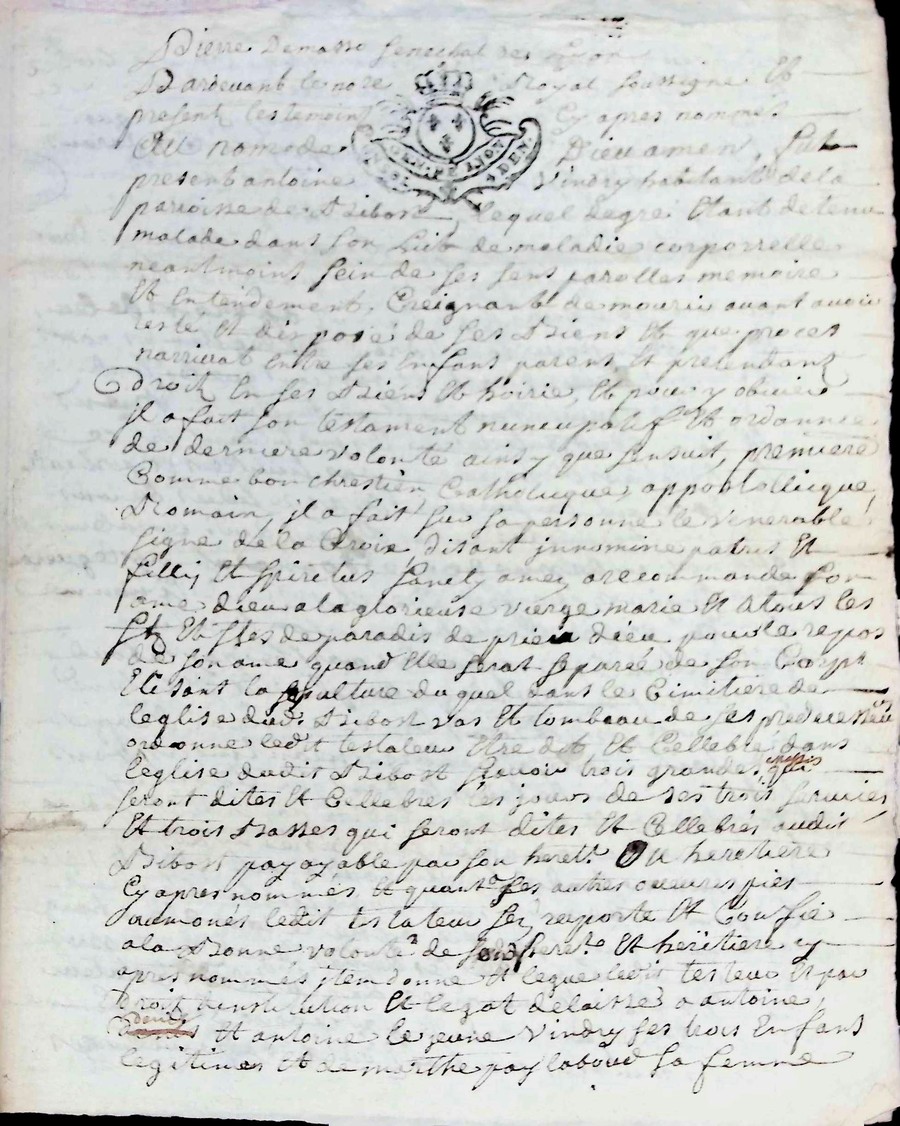 Pierre Demasso senechal de Lyon
Pardevant le nore Royal soussigne Et
present les temoins Cy apres nommes
GEN. DE LYON
DEN.
Au nom de Dieu amen, fut
present antoine Vindry habitant de la
parroisse de Bibost, lequel de gre Etant detenu
malade dans son Lict de maladie corporrelle
neantmoins sein de ses sens parolles memoire
Et Entendement, Creignant de mourir avant avoir
testé Et disposé de ses Biens Et que proces
narrivat Entre ses Enfans parens, Et pretendant
droit En ses Biens Et hoirie, Et pour y obvier
jl a fait son testament nuncupatif Et ordonnance
de derniere volonté ainsy que sensuit, premiere
Comme bon chrestien Catholicque, appostollicque,
Romain, jl a fait sur sa personne le venerable
signe de la Croix disant jnnomine patris Et
fillij Et spiritus sancty amen a recommandé son
ame a dieu a la glorieuse vierge marie Et A tous les
Sts Et Stes de paradis de prier dieu pour le repos
de son ame quand Elle serat separée de son Corps
Elisant la sepulture duquel dans le Cimitiere de
leglise dudt Bibost vas Et tombeau de ses predecesseurs
ordonne ledit testateur Etre dit Et Cellebré dans
leglise dudit Bibost scavoir trois grandes messes qui
seront dites Et Cellebrés les jours de ses trois services
Et trois Basses qui seront dites Et Cellebrés audit
Bibost payayable par son herett. Ou heretiere
Cy apres nommés Et quant a ses autres oeuvres pies
aumones ledit testateur sen raporte Et Confie
a la Bonne volonté de Et heritiere cy
apres nommés jtem donne Et legue ledit testeur Et par
Droit dinstitution Et legat delaisse a antoine,
denis Et antoine le jeune Vindry ses trois Enfans
legitimes Et de marthe paylaboud sa femme